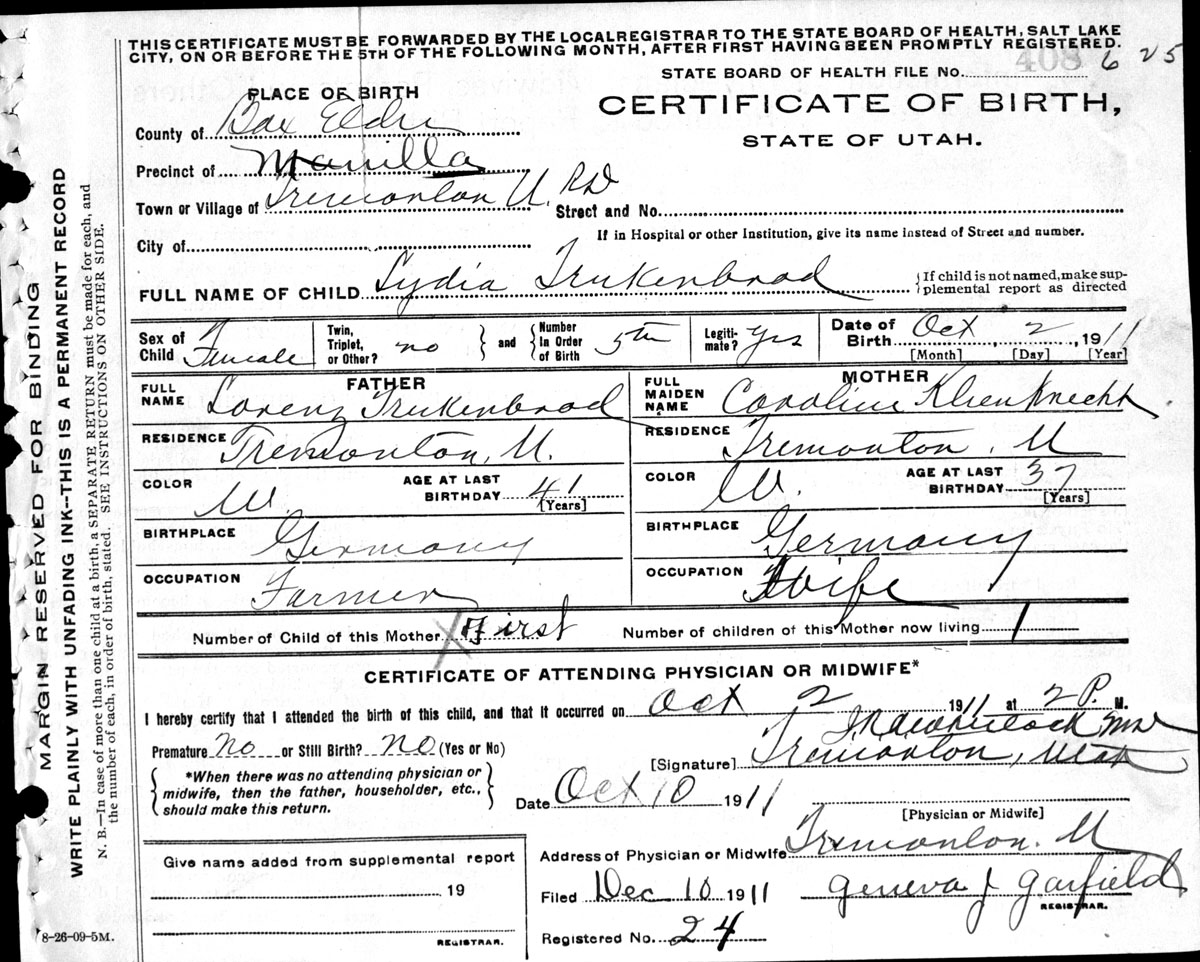 THIS CERTIFICATE MUST BE FORWARDED BY THE LOCAL REGISTRAR TO THE STATE BOARD OF HEALTH, SALT LAKE
CITY, ON OR BEFORE THE 5TH OF THE FOLLOWING MONTH, AFTER FIRST HAVING BEEN PROMPTLY REGISTERED.
STATE BOARD OF HEALTH FILE No. 408 6 25
PLACE OF BIRTH
CERTIFICATE OF BIRTH,
STATE OF UTAH.
County of Box Elder
Precinct of Manilla
Town or Village of Tremonton U. RD Street and No.
If in Hospital or other Institution, give its name instead of Street and number.
City of
FULL NAME OF CHILD Lydia Trukenbrod {If child is not named, make sup-
plemental report as directed
Sex of Child Female Twin, Triplet, or Other? no and Number In Order of Birth 5th Legiti- mate? Yes Date of Birth Oct 2, 1911
[Month] [Day] [Year]
FATHER MOTHER
FULL NAME Lorenz Trukenbrod FULL MAIDEN NAME Caroline KlienKnecht
RESIDENCE Tremonton, U. RESIDENCE Tremonton, U
COLOR W. AGE AT LAST BIRTHDAY 41 [Years] COLOR W. AGE AT LAST BIRTHDAY 37 [Years]
BIRTHPLACE Germany BIRTHPLACE Germany
OCCUPATION Farmer OCCUPATION HWife
Number of Child of this Mother First Number of children of this Mother now living 1
CERTIFICATE OF ATTENDING PHYSICIAN OR MIDWIFE*
I hereby certify that I attended the birth of this child, and that it occurred on Oct 2 1911 at 2 P. M.
Premature no or Still Birth? no (Yes or No)
[Signature] Tremonton, Utah
*When there was no attending physician or
midwife, then the father, householder, etc.,
should make this return.
Date Oct 10 1911
[Physician or Midwife]
Give name added from supplemental report
19
REGISTRAR.
Address of Physician or Midwife Tremonton. U
Filed Dec 10 1911 Geneva J Garfield
REGISTRAR.
Registered No. 24
8-26-09-5M.
MARGIN RESERVED FOR BINDING
WRITE PLAINLY WITH UNFADING INK--THIS IS A PERMANENT RECORD
N. B.—In case of more than one child at a birth, a SEPARATE RETURN must be made for each, and
the number of each, in order of birth, stated. SEE INSTRUCTIONS ON OTHER SIDE.